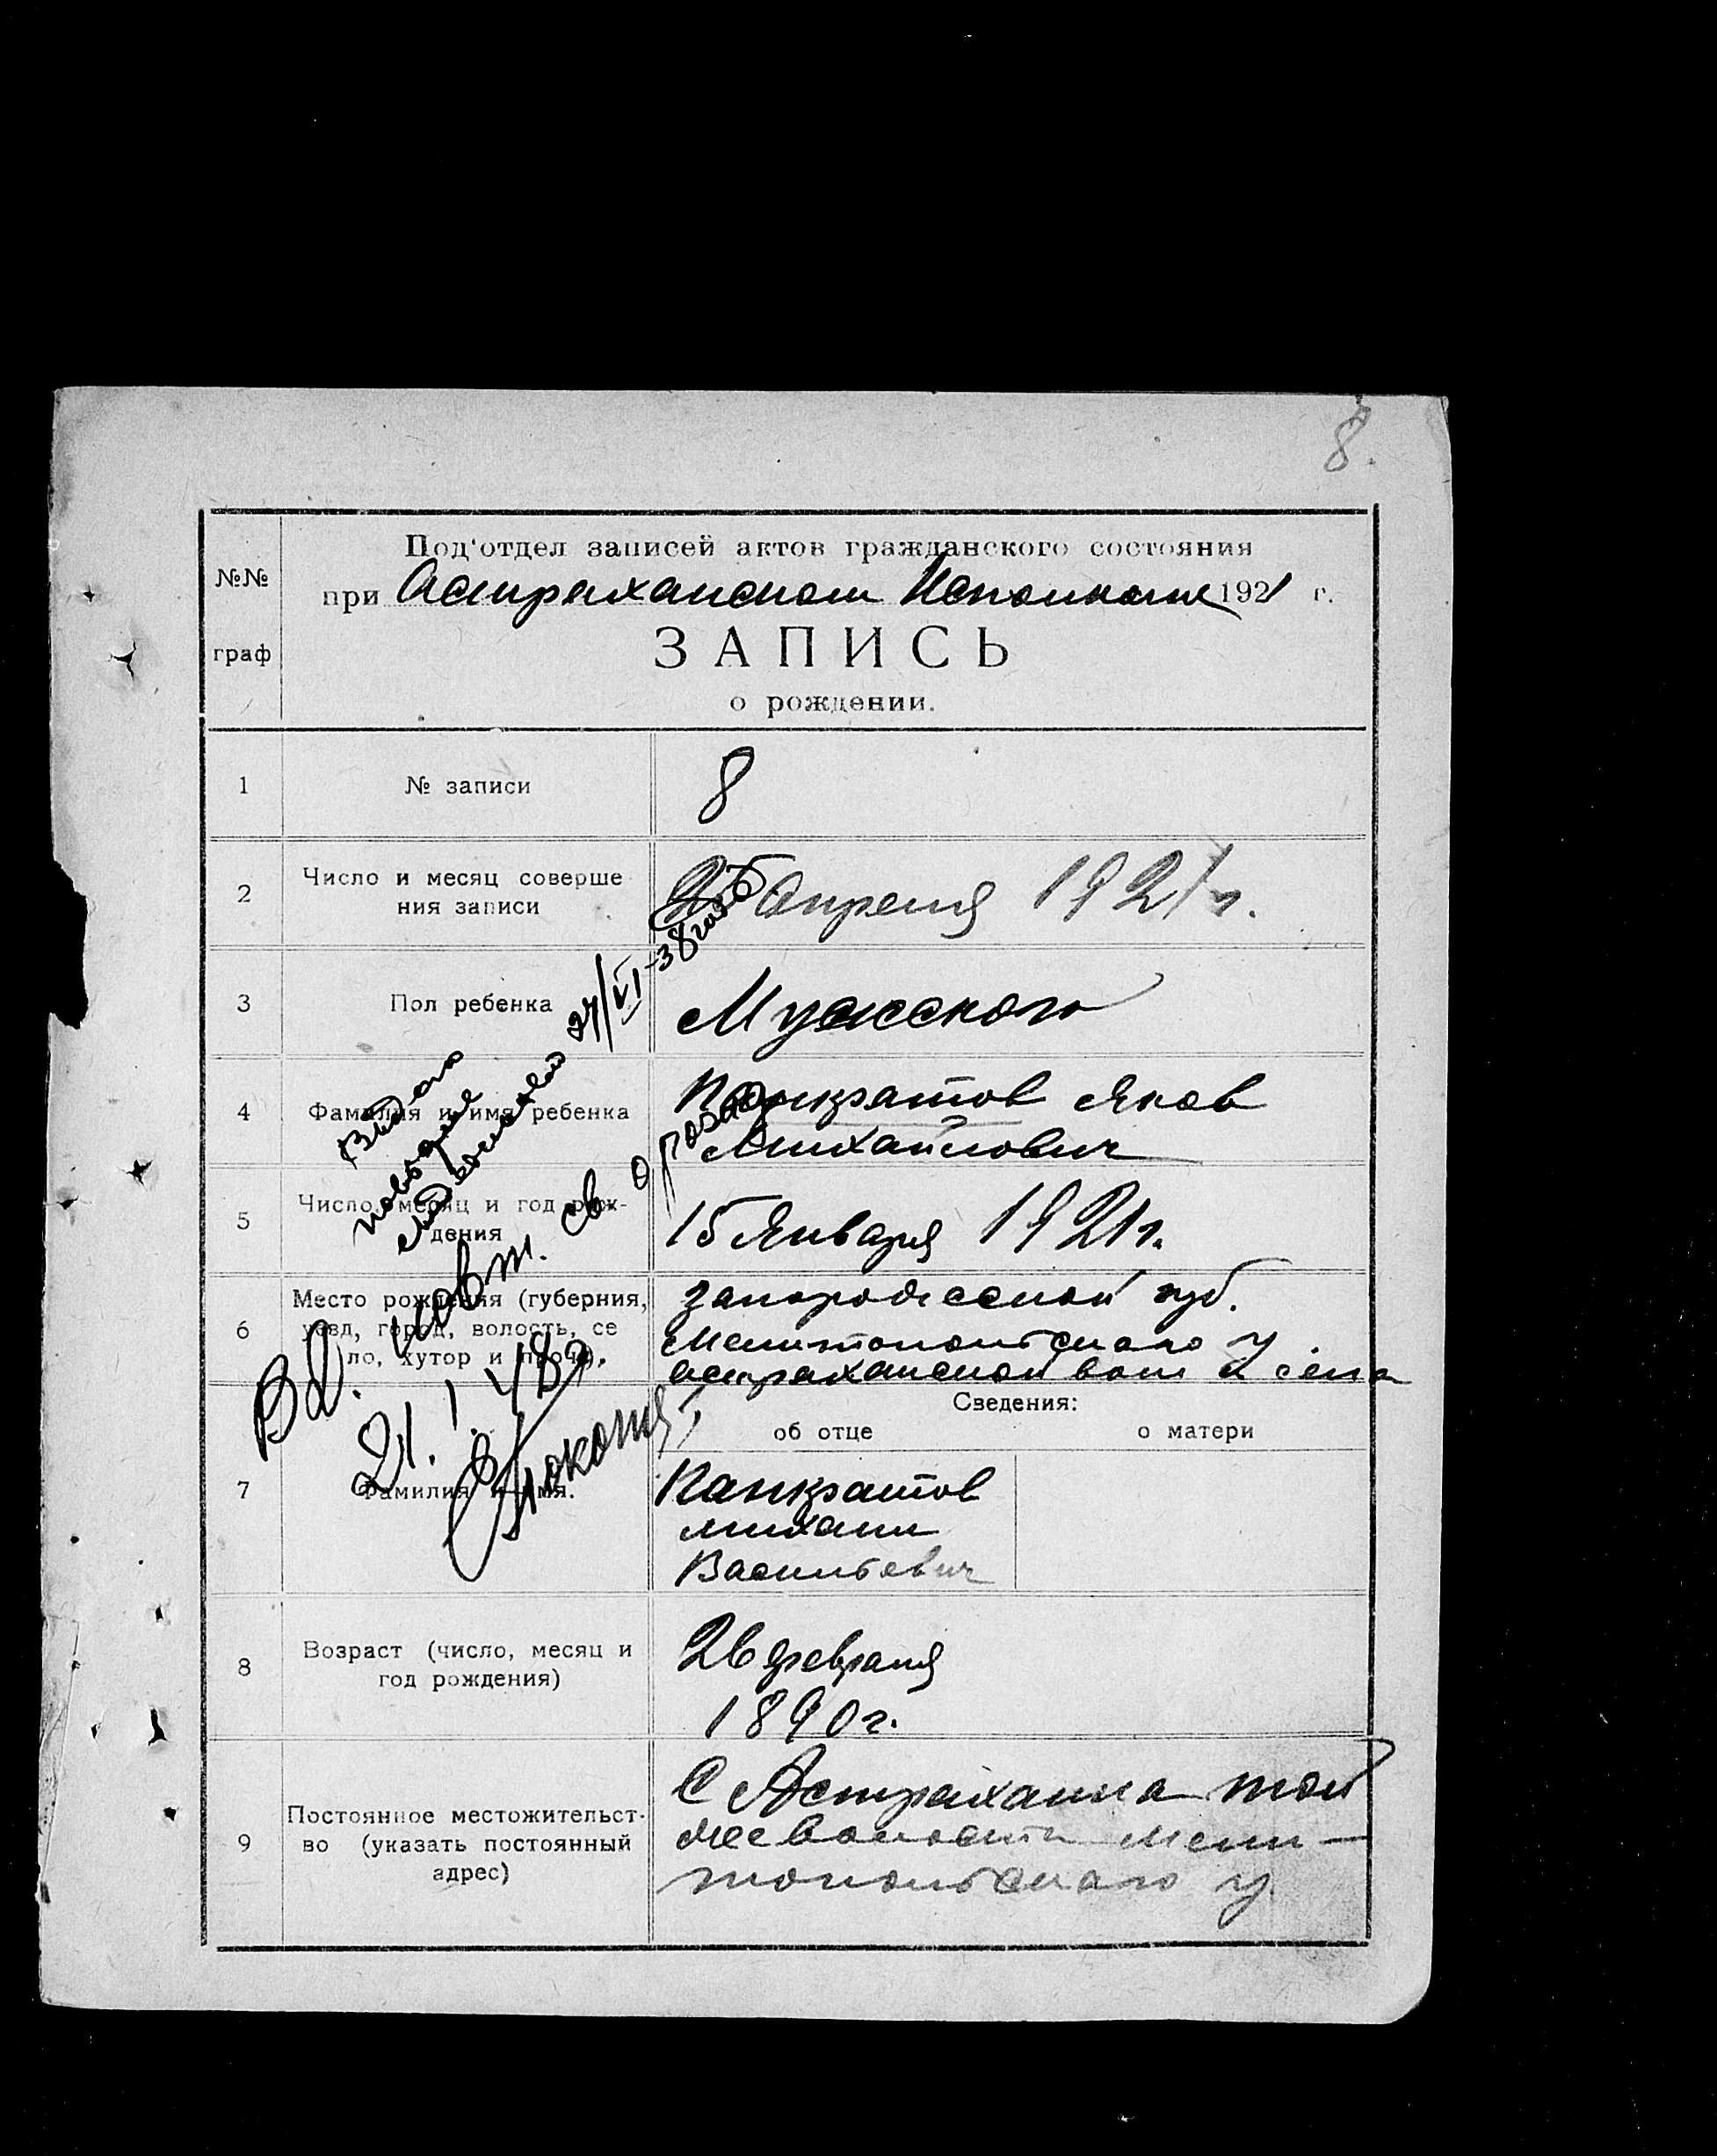 8.
Под'отдел записей актов гражданского состояния
№№
при Астраханском Исполкоме 1921 г.
граф
ЗАПИСЬ
о рождении.
1 № записи 8
2 Число и месяц соверше
ния записи
Апреля 1921 г.
3 Пол ребенка Мужского
4 Фамилия и имя ребенка
Панкратов Яков
Михайлович
5 Число, месяц и год рож-
дения
15 Января 1921 г.
6 Место рождения (губерния,
уезд, город, волость, се
ло, хутор и проч.).
Запорожсской губ.
Мелитопольского у
астраханской вол и села
Сведения:
об отце о матери
7 Фамилия и имя.
Панкратов
михаил
Васильевич
8 Возраст (число, месяц и
год рождения)
26 февраля
1890 г.
9 Постоянное местожительст-
во (указать постоянный
адрес)
С Астраханка той
же волости Мели-
топольского у
Выдано
27/VI-38 года
Выд. повт. св. о рожд
21.1.48г